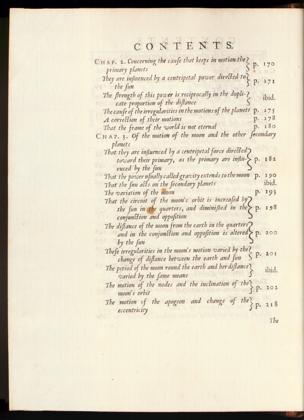 CONTENTS.
CHAP. 2. Concerning the cause that keeps in motion the primary planets p. 170
They are influenced by a centripetal power directed to the sun p. 171
The strength of this power is reciprocally in the duplicate proportion of the distance ibid.
The cause of the irregularities in the motions of the planets p. 175
A correction of their motions p. 178
That the frame of the world is not eternal p. 180
CHAP. 3. Of the motion of the moon and the other secondary planets
That they are influenced by a centripetal force directed toward their primary, as the primary are influenced by the sun p. 182
That the power usually called gravity extends to the moon p. 190
That the sun acts on the secondary planets ibid.
The variation of the moon p. 193
That the circuit of the moon's orbit is increased by the sun in the quarters, and diminished in the conjunction and opposition p. 198
The distance of the moon from the earth in the quarters and in the conjunction and opposition is altered by the sun p. 200
These irregularities in the moon's motion varied by the change of distance between the earth and sun p. 201
The period of the moon round the earth and her distance varied by the same means ibid.
The motion of the nodes and the inclination of the moon's orbit p. 202
The motion of the apogeon and change of the eccentricity p. 218
The